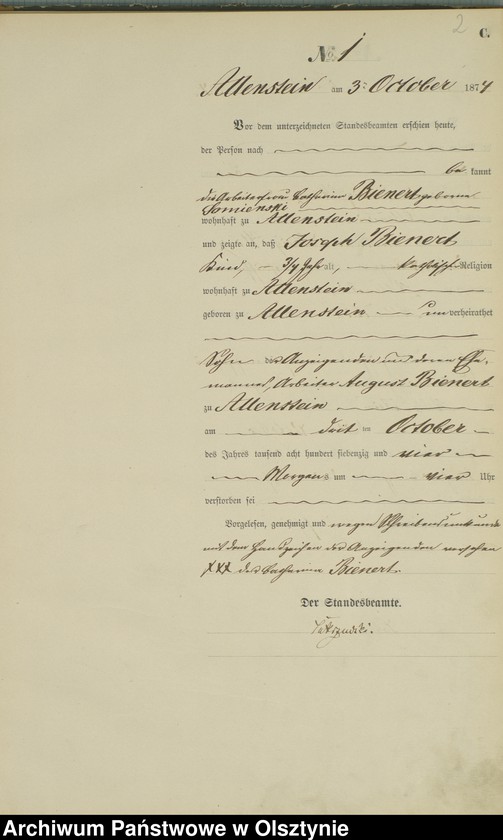 2
C.
No. 1
Allenstein am 3. October 1874
Vor dem unterzeichneten Standesbeamten erschien heute,
der Person nach
be kannt
die Arbeiterfrau Catharina Bienert geborene
Tomienski
wohnhaft zu Allenstein
und zeigte an, daß Joseph Bienert
Kind, 3/4 Jahr alt, katholisch Religion
wohnhaft zu Allenstein
geboren zu Allenstein unverheirathet
Sohn der Anzeigenden und deren Ehe-
mannes, Arbeiter August Bienert
zu Allenstein
am October
des Jahres tausend acht hundert siebenzig und vier
Morgens um vier Uhr
verstorben sei
Vorgelesen, genehmigt und wegen Schreibensunkunde
mit dem Handzeichen der Anzeigenden versehen
XXX der Catharina Bienert.
Der Standesbeamte.
Archiwum Państwowe w Olsztynie